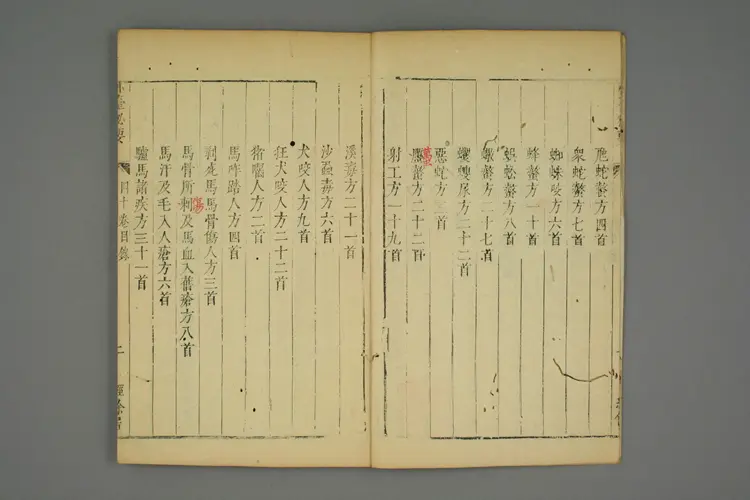 虺蛇螫方四首
衆蛇螫方七首
蜘蛛咬方六首
蜂螫方一十首
蜈蚣螫方八首
蠍螫方二十七首
蠼螋尿方二十二首
方三首
螫方二十二首
射工方一十九首
溪毒方二十一首
沙虱毒方六首
犬咬人方九首
狂犬咬人方二十二首
猪齧人方二首
馬咋踏人方四首
剥死馬馬骨傷人方三首
馬骨所刺及馬血入舊瘡方八首
傷
馬汗及毛入人瘡方六首
驢馬諸疾方三十一首
臺秘要 四十卷目錄 二 經餘居